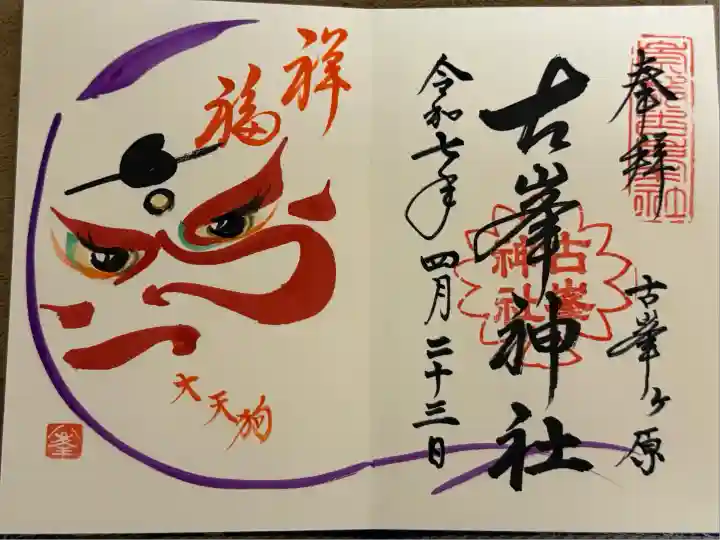 奉拝
古峯ヶ原
古峯神社
古峯
神社
令和七年四月二十三日
祥
福
大天狗
峯